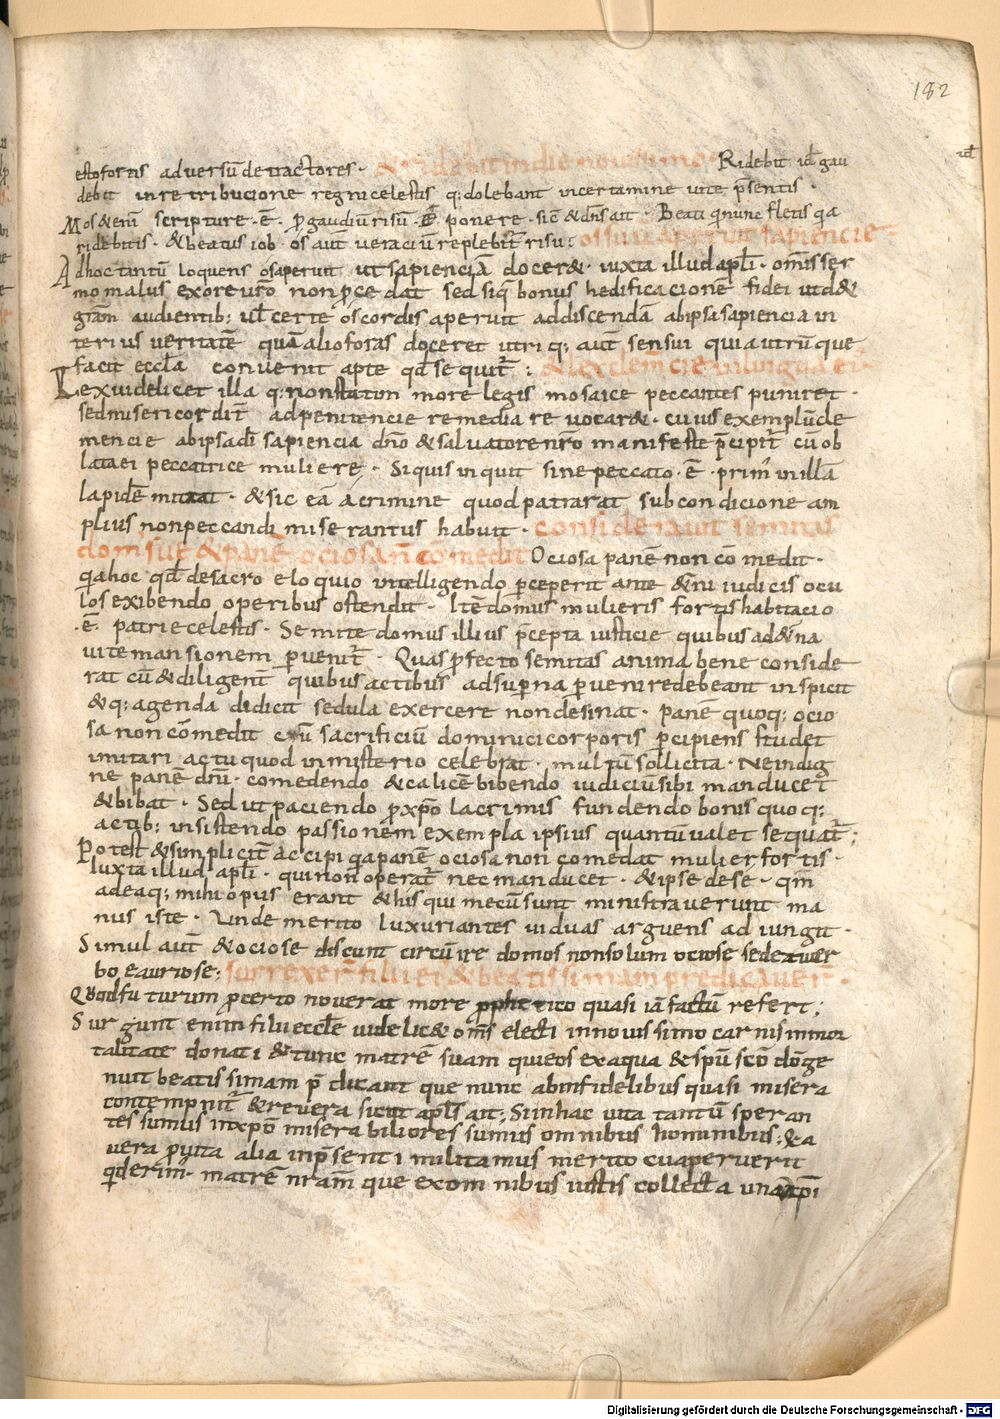 182
esto fortis adversū detractores · & ridebit in die novissimo · Ridebit id̄ gau
debit in retribucione regni celestis q; dolebant in certamine vite p̄sentis ·
Mos & enī scripture · ē · p gaudiū risū ponere · sic̄ & dn̄s ait · Beati qui nunc fletis qa
ridebitis · & beatus iob · os aut̄ veraciū replebit̄ risu : os suū aperuit sapiencie
Ad hoc tantū loquens os aperuit ut sapienciā docer& · iuxta illud apl̄i · om̄is ser
mo malus ex ore vr̄o non procedat sed siq̄ bonus hedificacionē fidei ut d&
gr̄am audientib; ul̄ certe os cordis aperuit ad discendā ab ipsa sapiencia in
terius veritatē quā alio foras doceret utriq; aut̄ sensui quia utrūque
facit eccl̄a convenit apte qd̄ sequit̄ : & lex clem̄cie in lingua ei
Lex videlicet illa q; non statim more legis mosaice peccantes puniret ·
sed misericordit̄ ad penitencie remedia revocar& · cuius exemplū cle
mencie ab ipsa dī sapiencia dn̄o & salvatore nr̄o manifeste p̄cipit̄ cū ob
lata ei peccatrice muliere · Si quis inquit sine peccato · ē · prim̄ in illā
lapidē mittat · & sic eā a crimine quod patrarat sub condicione am
plius non peccandi miserantus habuit · consideravit semitas
dom̄ sue & panē ociosa n̄ cōmedit Ociosa panē non cōmedit ·
qa hoc qd̄ de sacro eloquio intelligendo perceperit ante & n̄i iudicis ocu
los exibendo operibus ostendit · Itē domus mulieris fortis habitacio
· ē · patrie celestis · Semite domus illius p̄cepta iusticie quibus ad & n̄a
vite mansionem pervenit̄ · Quas profecto semitas anima bene conside
rat cū & diligent̄ quibus actibus ad superna pervenire debeant inspicit
& q; agenda didicit sedula exercere non desinat · Panē quoq; ocio
sa non cōmedit cū sacrificiū dominici corporis percipiens studet
imitari actu quod in misterio celebrat · multū sollicita · Ne indig
ne panē dn̄i · comedendo & calicē bibendo iudiciū sibi manducet
& bibat · Sed ut paciendo pro xp̄o lacrimis fundendo bonis quoq;
actib; insistendo passionem exempla ipsius quantū valet sequat̄ ;
Potest & simplicit̄ accipi qa panē ociosa non comedat mulier fortis ·
Iuxta illud apl̄i · qui non operat̄ nec manducet · & ipse de se · qm̄
ad ea q; mihi opus erant & his qui mecū sunt ministraverunt ma
nus iste · Unde merito luxuriantes viduas arguens adiungit ·
Simul aut̄ & ociose discunt circūire domos non solum ociose sed & ver
bose & curiose ; surrexer̄ filii ei & beatissimam predicaver̄ ·
Quod futurum procerto noverat more prophetico quasi iā factū refert ;
Surgunt enim filii eccl̄e videlic& om̄s electi in novissimo carnis inmor
talitate donati & tunc matrē suam que eos ex aqua & sp̄u sc̄o dōge
nuit beatissimam p̄dicant que nunc ab infidelibus quasi misera
contempnit̄ & revera sicut apl̄s ait ; Si in hac vita tantū speran
tes sumus in xp̄o miserabiliores sumus omnibus hominibus ; & a
vera pro vita alia in p̄senti militamus merito cū apervерit
matrē nr̄am que ex omnibus iustis collecta una
id̄
Digitalisierung gefördert durch die Deutsche Forschungsgemeinschaft - DFG